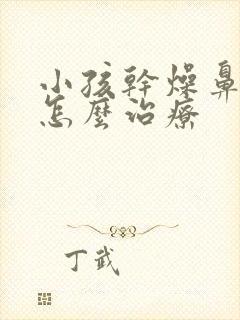 小孩幹燥鼻
怎麼治療
丁武